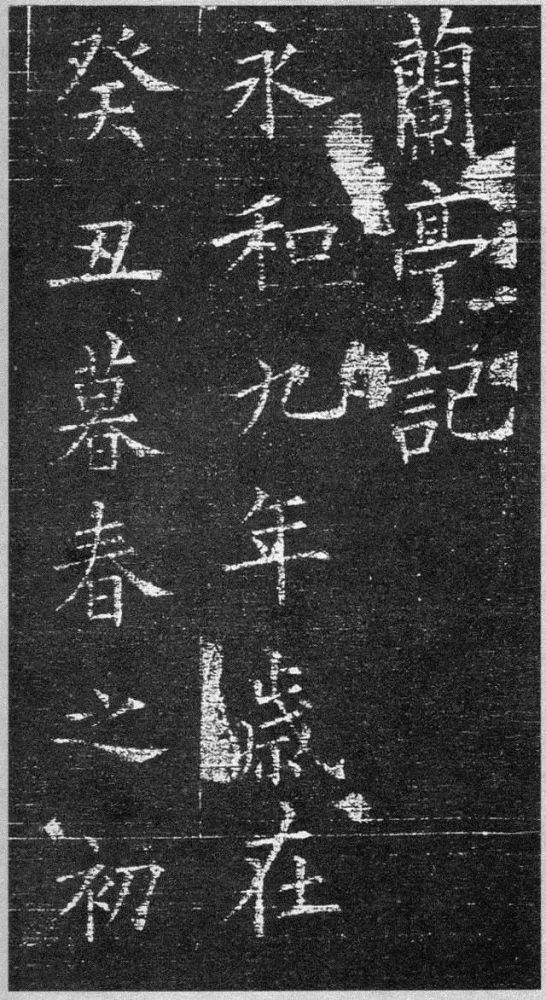 蘭亭記
永和九年歲在
癸丑暮春之初